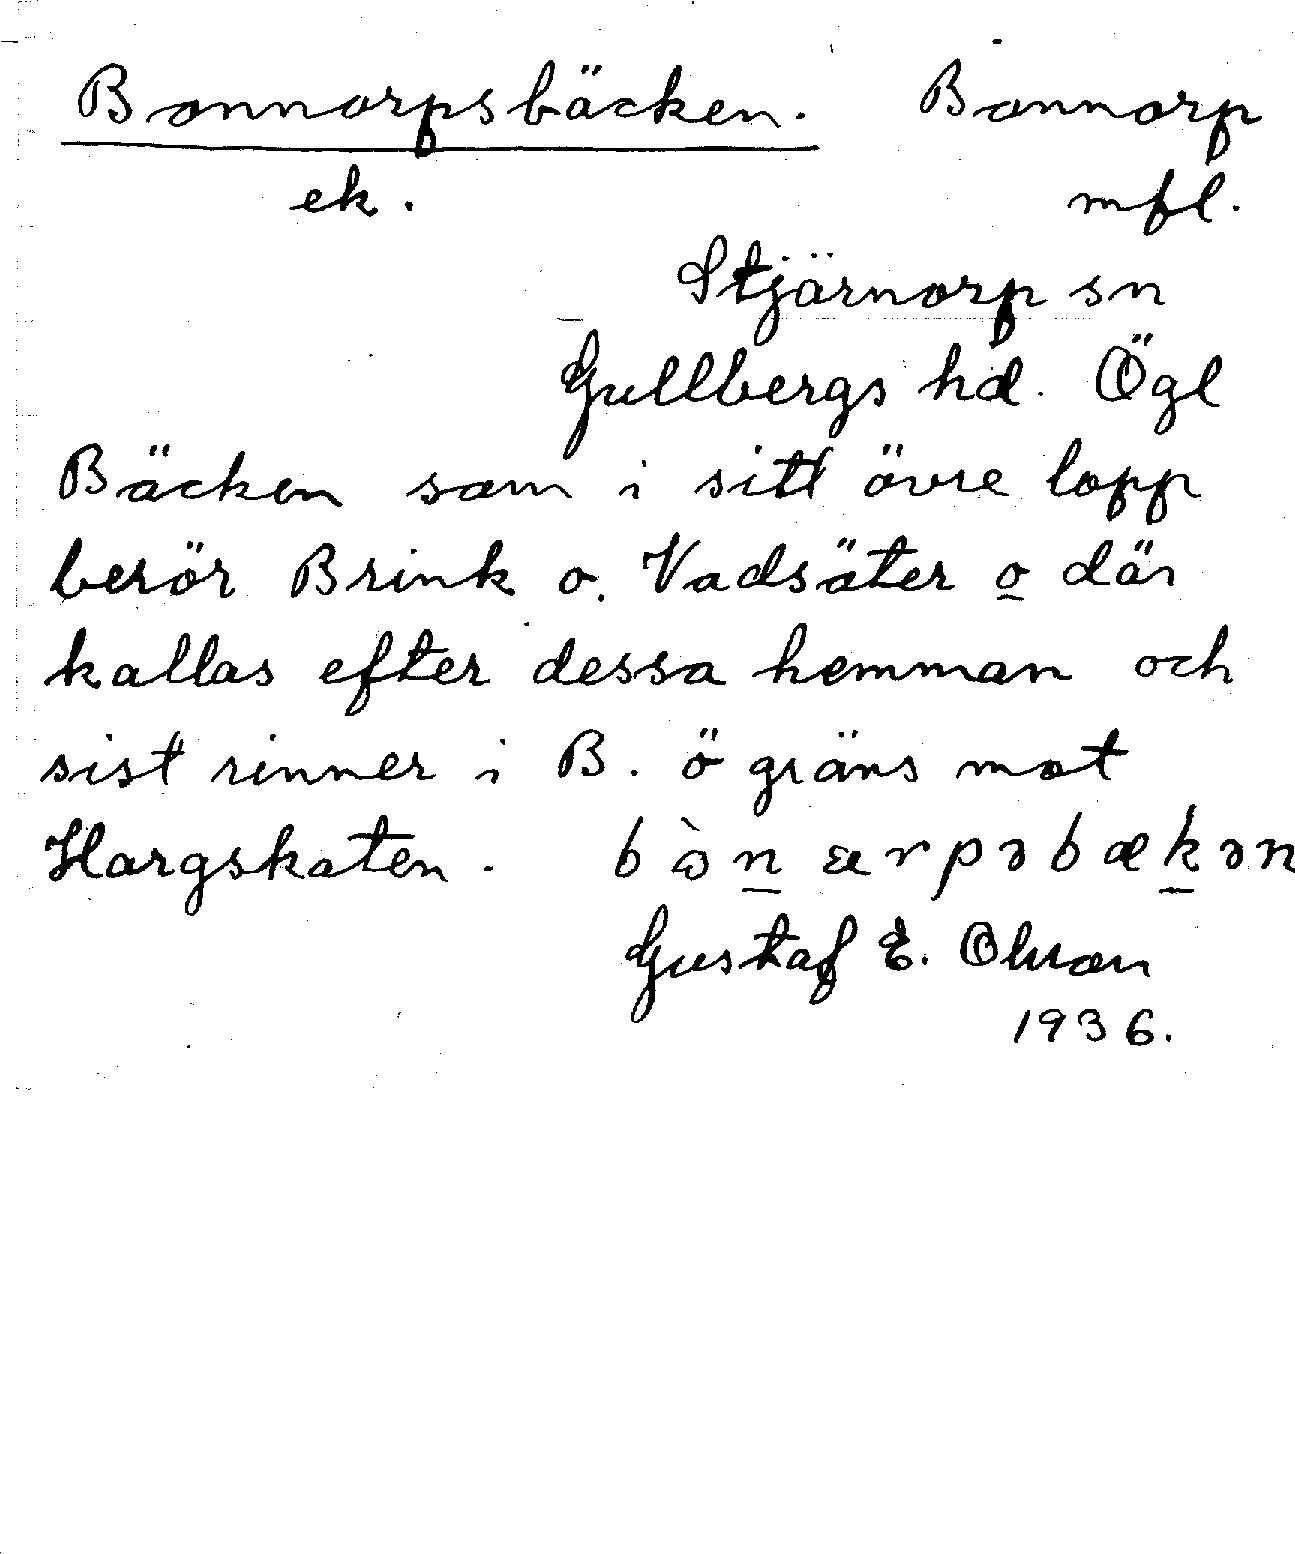 Bonnorpsbäcken. Bonnorp
ek. mfl.
Stjärnorp sn
Gullbergs hd. Ögl
Bäcken som i sitt övre lopp
berör Brink o. Vadsäter o där
kallas efter dessa hemman och
sist rinner i B. ö gräns mot
Hargskaten.
Gustaf E. Olsson
1936.